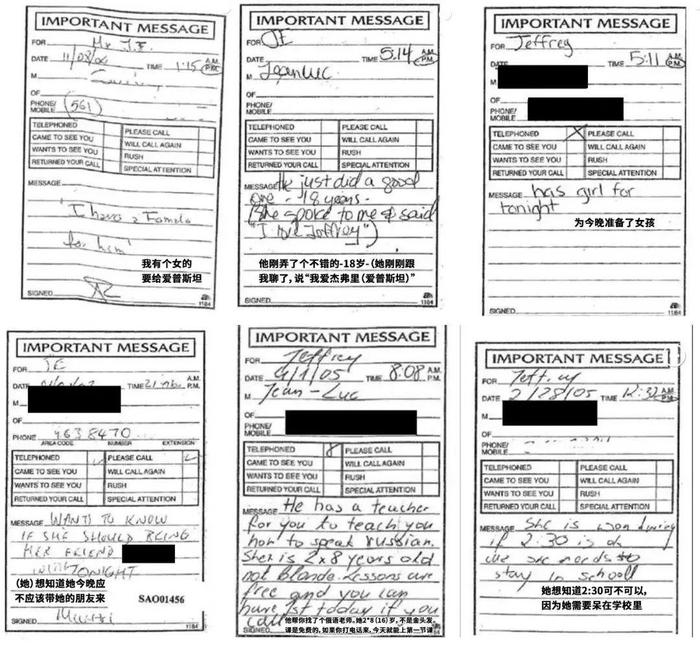 IMPORTANT MESSAGE
FOR Mr J.E.
DATE 11/08/04 TIME 1:15 A.M. P.M.
M
OF
PHONE/
MOBILE (561)
TELEPHONED PLEASE CALL
CAME TO SEE YOU WILL CALL AGAIN
WANTS TO SEE YOU RUSH
RETURNED YOUR CALL SPECIAL ATTENTION
MESSAGE
"I have a Female
for him"
我有个女的
要给爱普斯坦
SIGNED
1184
IMPORTANT MESSAGE
FOR JE
DATE TIME 5:14 A.M. P.M.
M Jean Luc
OF
PHONE/
MOBILE
TELEPHONED PLEASE CALL
CAME TO SEE YOU WILL CALL AGAIN
WANTS TO SEE YOU RUSH
RETURNED YOUR CALL SPECIAL ATTENTION
MESSAGE He just did a good
one - 18 years -
(She spoke to me & said
"I love Jeffrey")
他刚弄了个不错的-18岁-(她刚刚跟
我聊了，说“我爱杰弗里(爱普斯坦)”
SIGNED
1184
IMPORTANT MESSAGE
FOR Jeffrey
DATE TIME 5:11 A.M. P.M.
M
OF
PHONE/
MOBILE
TELEPHONED X PLEASE CALL
CAME TO SEE YOU WILL CALL AGAIN
WANTS TO SEE YOU RUSH
RETURNED YOUR CALL SPECIAL ATTENTION
MESSAGE has girl for
tonight
为今晚准备了女孩
SIGNED
1184
IMPORTANT MESSAGE
FOR JE
DATE TIME A.M. P.M.
M
OF
PHONE 463 8470
AREA CODE NUMBER EXTENSION
TELEPHONED PLEASE CALL
CAME TO SEE YOU WILL CALL AGAIN
WANTS TO SEE YOU RUSH
RETURNED YOUR CALL SPECIAL ATTENTION
MESSAGE WANTS TO KNOW
IF SHE SHOULD BRING
HER FRIEND
TONIGHT
(她)想知道她今晚应
不应该带她的朋友来
SAO01456
SIGNED
IMPORTANT MESSAGE
FOR Jeffrey
DATE 4/1/05 TIME 8:08 A.M. P.M.
M Jean-Luc
OF
PHONE/
MOBILE
TELEPHONED PLEASE CALL
CAME TO SEE YOU WILL CALL AGAIN
WANTS TO SEE YOU RUSH
RETURNED YOUR CALL SPECIAL ATTENTION
MESSAGE He has a teacher
for you to teach you
how to speak russian.
She is 2x8 years old
not blonde. Lessons are
free and you can
have 1st today if you
call
他帮你找了个俄语老师，她2*8(16)岁，不是金头发。
课是免费的，如果你打电话来，今天就能上第一节课
IMPORTANT MESSAGE
FOR Jeffrey
DATE 2/28/05 TIME 12:32 A.M. P.M.
M
OF
PHONE/
MOBILE
TELEPHONED PLEASE CALL
CAME TO SEE YOU WILL CALL AGAIN
WANTS TO SEE YOU RUSH
RETURNED YOUR CALL SPECIAL ATTENTION
MESSAGE She is wondering
if 2:30 is ok
she needs to
stay in school
她想知道2:30可不可以，
因为她需要呆在学校里
SIGNED
1184